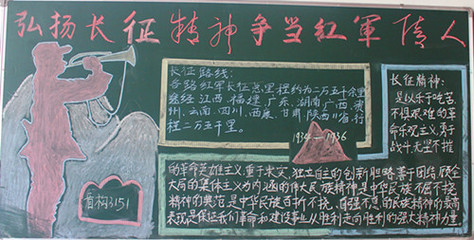 弘扬长征精神争当红軍传人
长征路线:
各路红军长征总里程约为二万五千余里
途经江西、福建、广东、湖南、广西、贵
州、云南、四川、西康、甘肃、陕西11省,行
程二万五千里。
1934—1936
长征精神:
是以乐于吃苦,
不惧艰难的革
命乐观主义;勇于
战斗,无坚不摧
的革命英雄主义;重于求实,独立自主的创新胆略;善于团结,顾全
大局的集体主义为内涵的伟大民族精神是中华民族不屈不挠
精神的典范,是中华民族百折不挠、自强不息的民族精神的最高
表现,是保证我们革命和建设事业从胜利走向胜利的强大精神力量。
首构3151